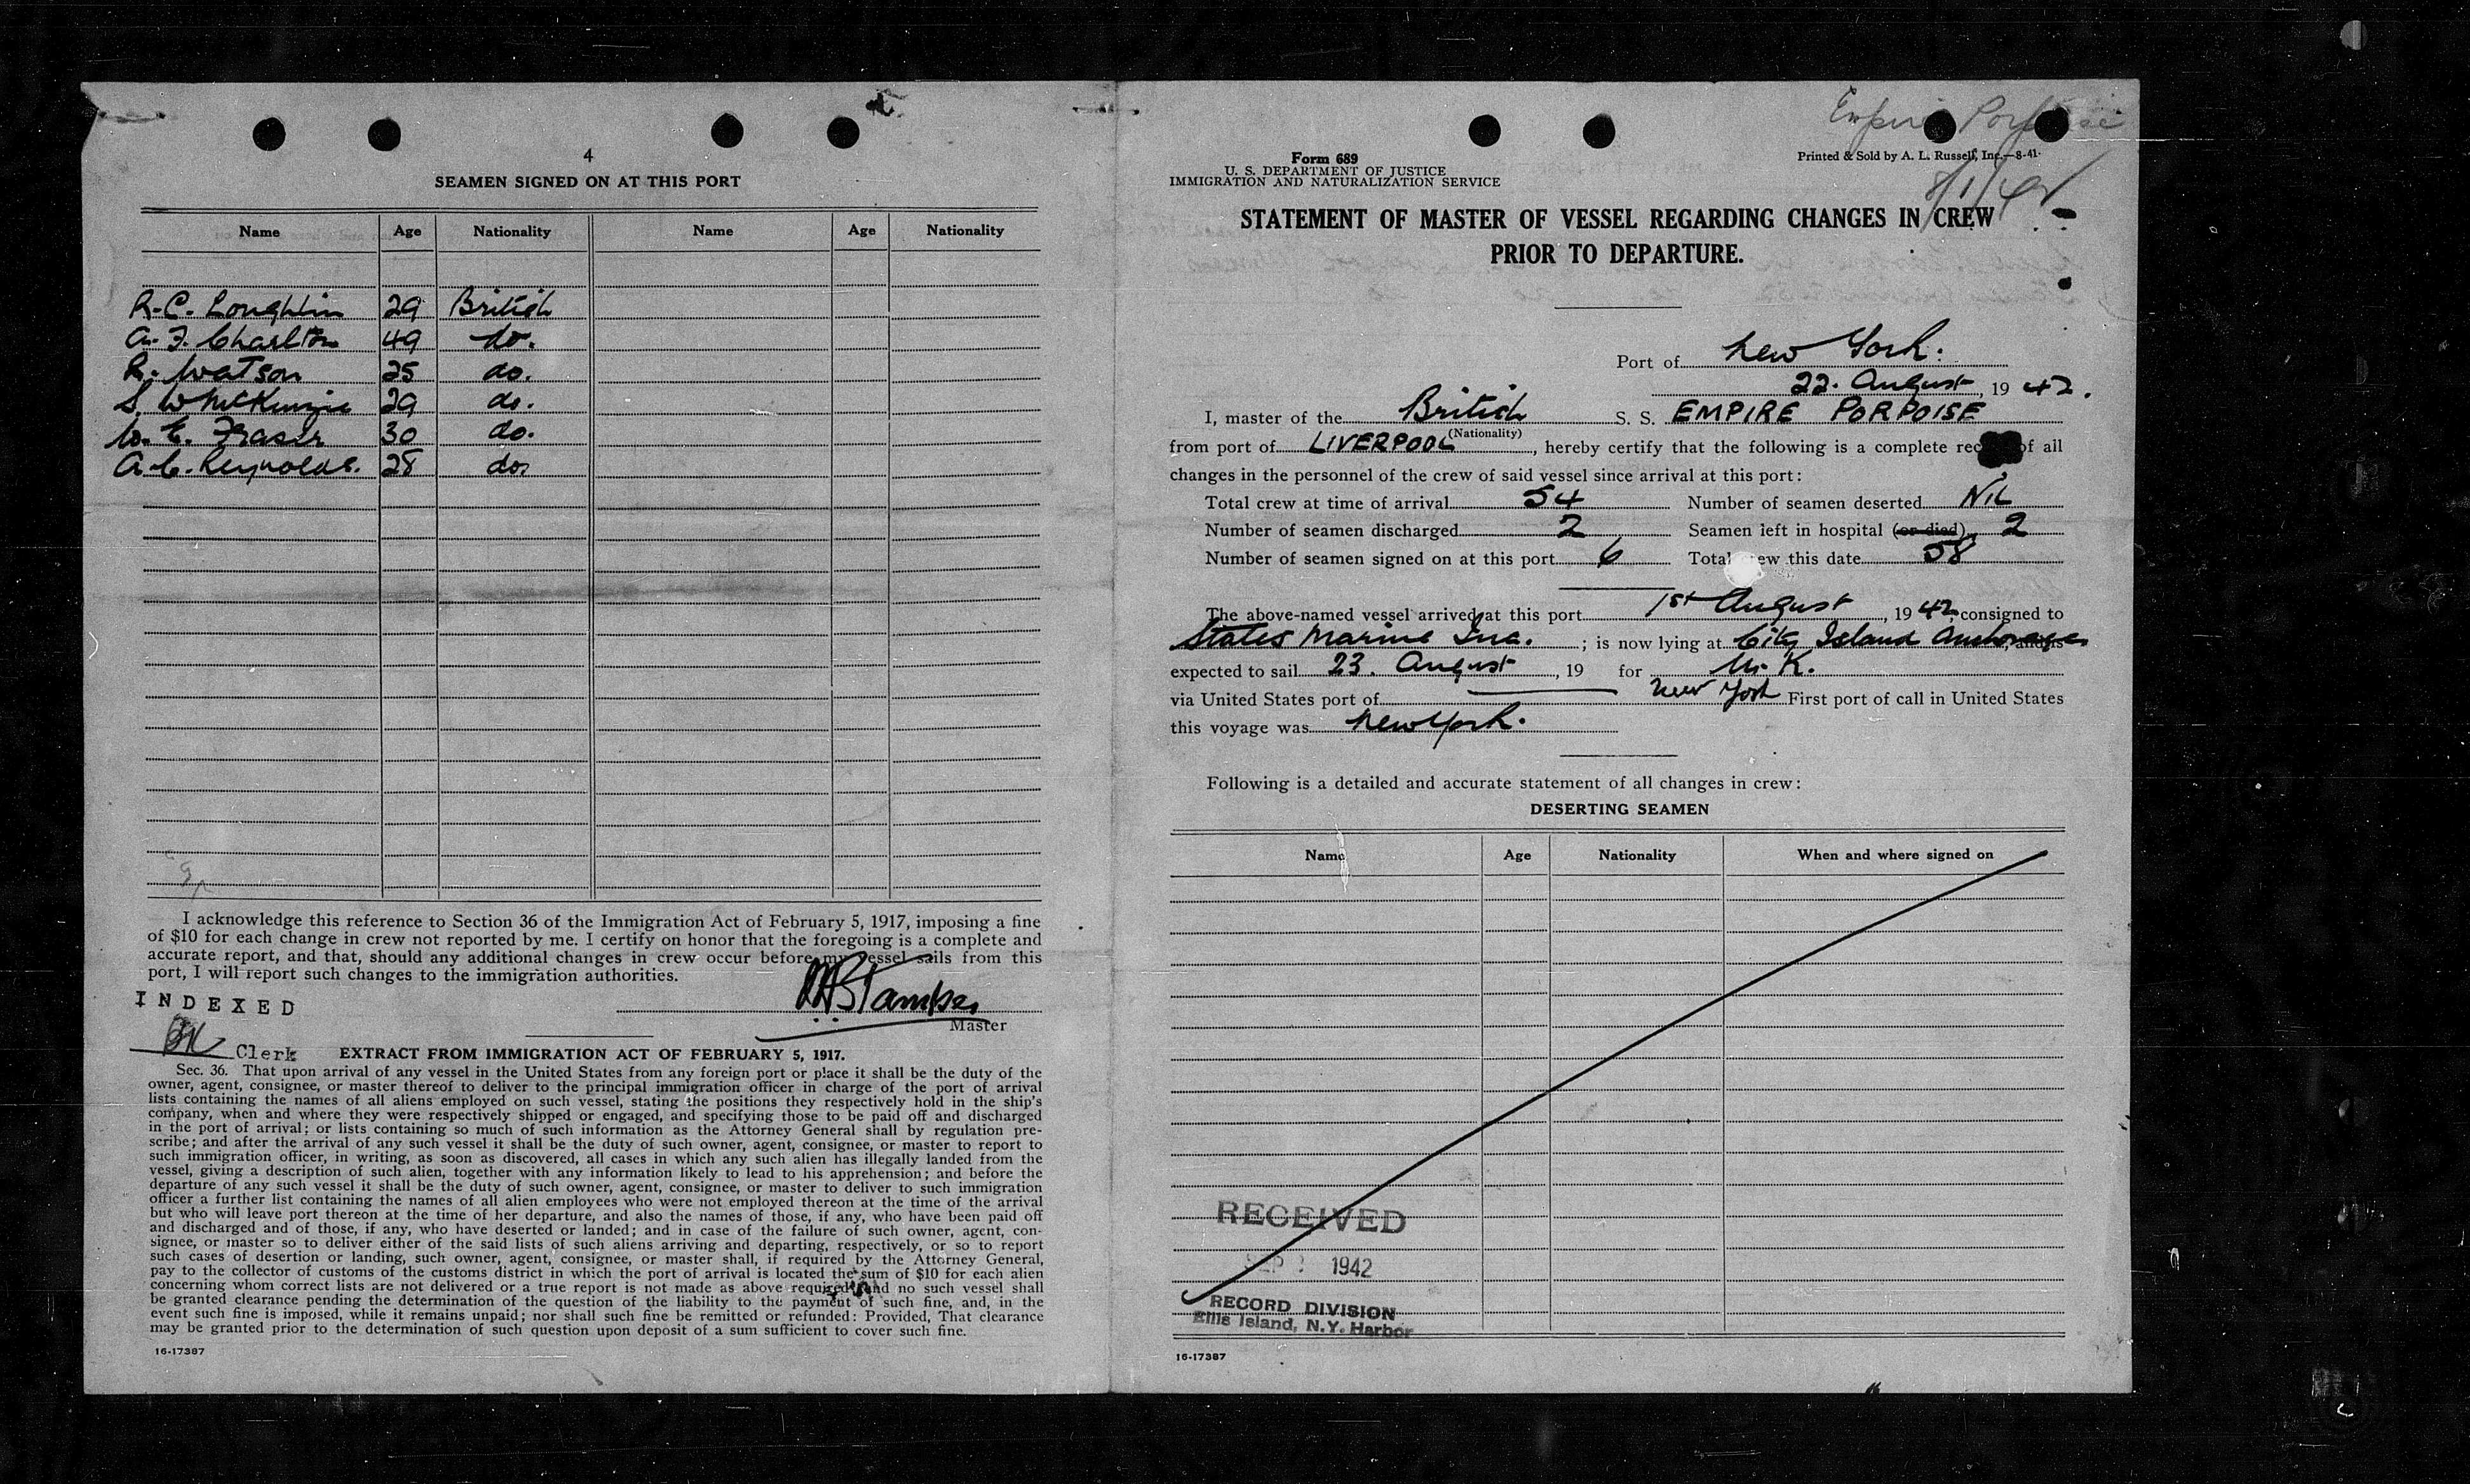 4
SEAMEN SIGNED ON AT THIS PORT
Name Age Nationality Name Age Nationality
R. C. Loughlin 29 British
A. F. Charlton 49 do.
R. Watson 25 do.
S. W McKenzie 29 do.
W. E. Fraser 30 do.
A. C. Reynolds. 28 do.
I acknowledge this reference to Section 36 of the Immigration Act of February 5, 1917, imposing a fine
of $10 for each change in crew not reported by me. I certify on honor that the foregoing is a complete and
accurate report, and that, should any additional changes in crew occur before my vessel sails from this
port, I will report such changes to the immigration authorities.
INDEXED
Master
Clerk
EXTRACT FROM IMMIGRATION ACT OF FEBRUARY 5, 1917.
Sec. 36. That upon arrival of any vessel in the United States from any foreign port or place it shall be the duty of the
owner, agent, consignee, or master thereof to deliver to the principal immigration officer in charge of the port of arrival
lists containing the names of all aliens employed on such vessel, stating the positions they respectively hold in the ship's
company, when and where they were respectively shipped or engaged, and specifying those to be paid off and discharged
in the port of arrival; or lists containing so much of such information as the Attorney General shall by regulation pre-
scribe; and after the arrival of any such vessel it shall be the duty of such owner, agent, consignee, or master to report to
such immigration officer, in writing, as soon as discovered, all cases in which any such alien has illegally landed from the
vessel, giving a description of such alien, together with any information likely to lead to his apprehension; and before the
departure of any such vessel it shall be the duty of such owner, agent, consignee, or master to deliver to such immigration
officer a further list containing the names of all alien employees who were not employed thereon at the time of the arrival
but who will leave port thereon at the time of her departure, and also the names of those, if any, who have been paid off
and discharged and of those, if any, who have deserted or landed; and in case of the failure of such owner, agent, con-
signee, or master so to deliver either of the said lists of such aliens arriving and departing, respectively, or so to report
such cases of desertion or landing, such owner, agent, consignee, or master shall, if required by the Attorney General,
pay to the collector of customs of the customs district in which the port of arrival is located the sum of $10 for each alien
concerning whom correct lists are not delivered or a true report is not made as above required; and no such vessel shall
be granted clearance pending the determination of the question of the liability to the payment of such fine, and, in the
event such fine is imposed, while it remains unpaid; nor shall such fine be remitted or refunded: Provided, That clearance
may be granted prior to the determination of such question upon deposit of a sum sufficient to cover such fine.
16-17387
Empire Porpoise
8/1/42
Form 689
U. S. DEPARTMENT OF JUSTICE
IMMIGRATION AND NATURALIZATION SERVICE
Printed & Sold by A. L. Russell, Inc.—8-41
STATEMENT OF MASTER OF VESSEL REGARDING CHANGES IN CREW
PRIOR TO DEPARTURE.
Port of New York.
22. August, 19 42.
I, master of the British S. S. EMPIRE PORPOISE
(Nationality)
from port of LIVERPOOL, hereby certify that the following is a complete rec of all
changes in the personnel of the crew of said vessel since arrival at this port:
Total crew at time of arrival 54 Number of seamen deserted NIL
Number of seamen discharged 2 Seamen left in hospital (or died) 2
Number of seamen signed on at this port 6 Total ew this date 58
The above-named vessel arrived at this port 1st August, 19 42, consigned to
States Marine Inc. ; is now lying at City Island Anchorage, and is
expected to sail 23. August, 19 for U. K.
via United States port of New York First port of call in United States
this voyage was New York.
Following is a detailed and accurate statement of all changes in crew:
DESERTING SEAMEN
Name Age Nationality When and where signed on
RECEIVED
SEP 1942
RECORD DIVISION
Ellis Island, N.Y. Harbor
16-17387